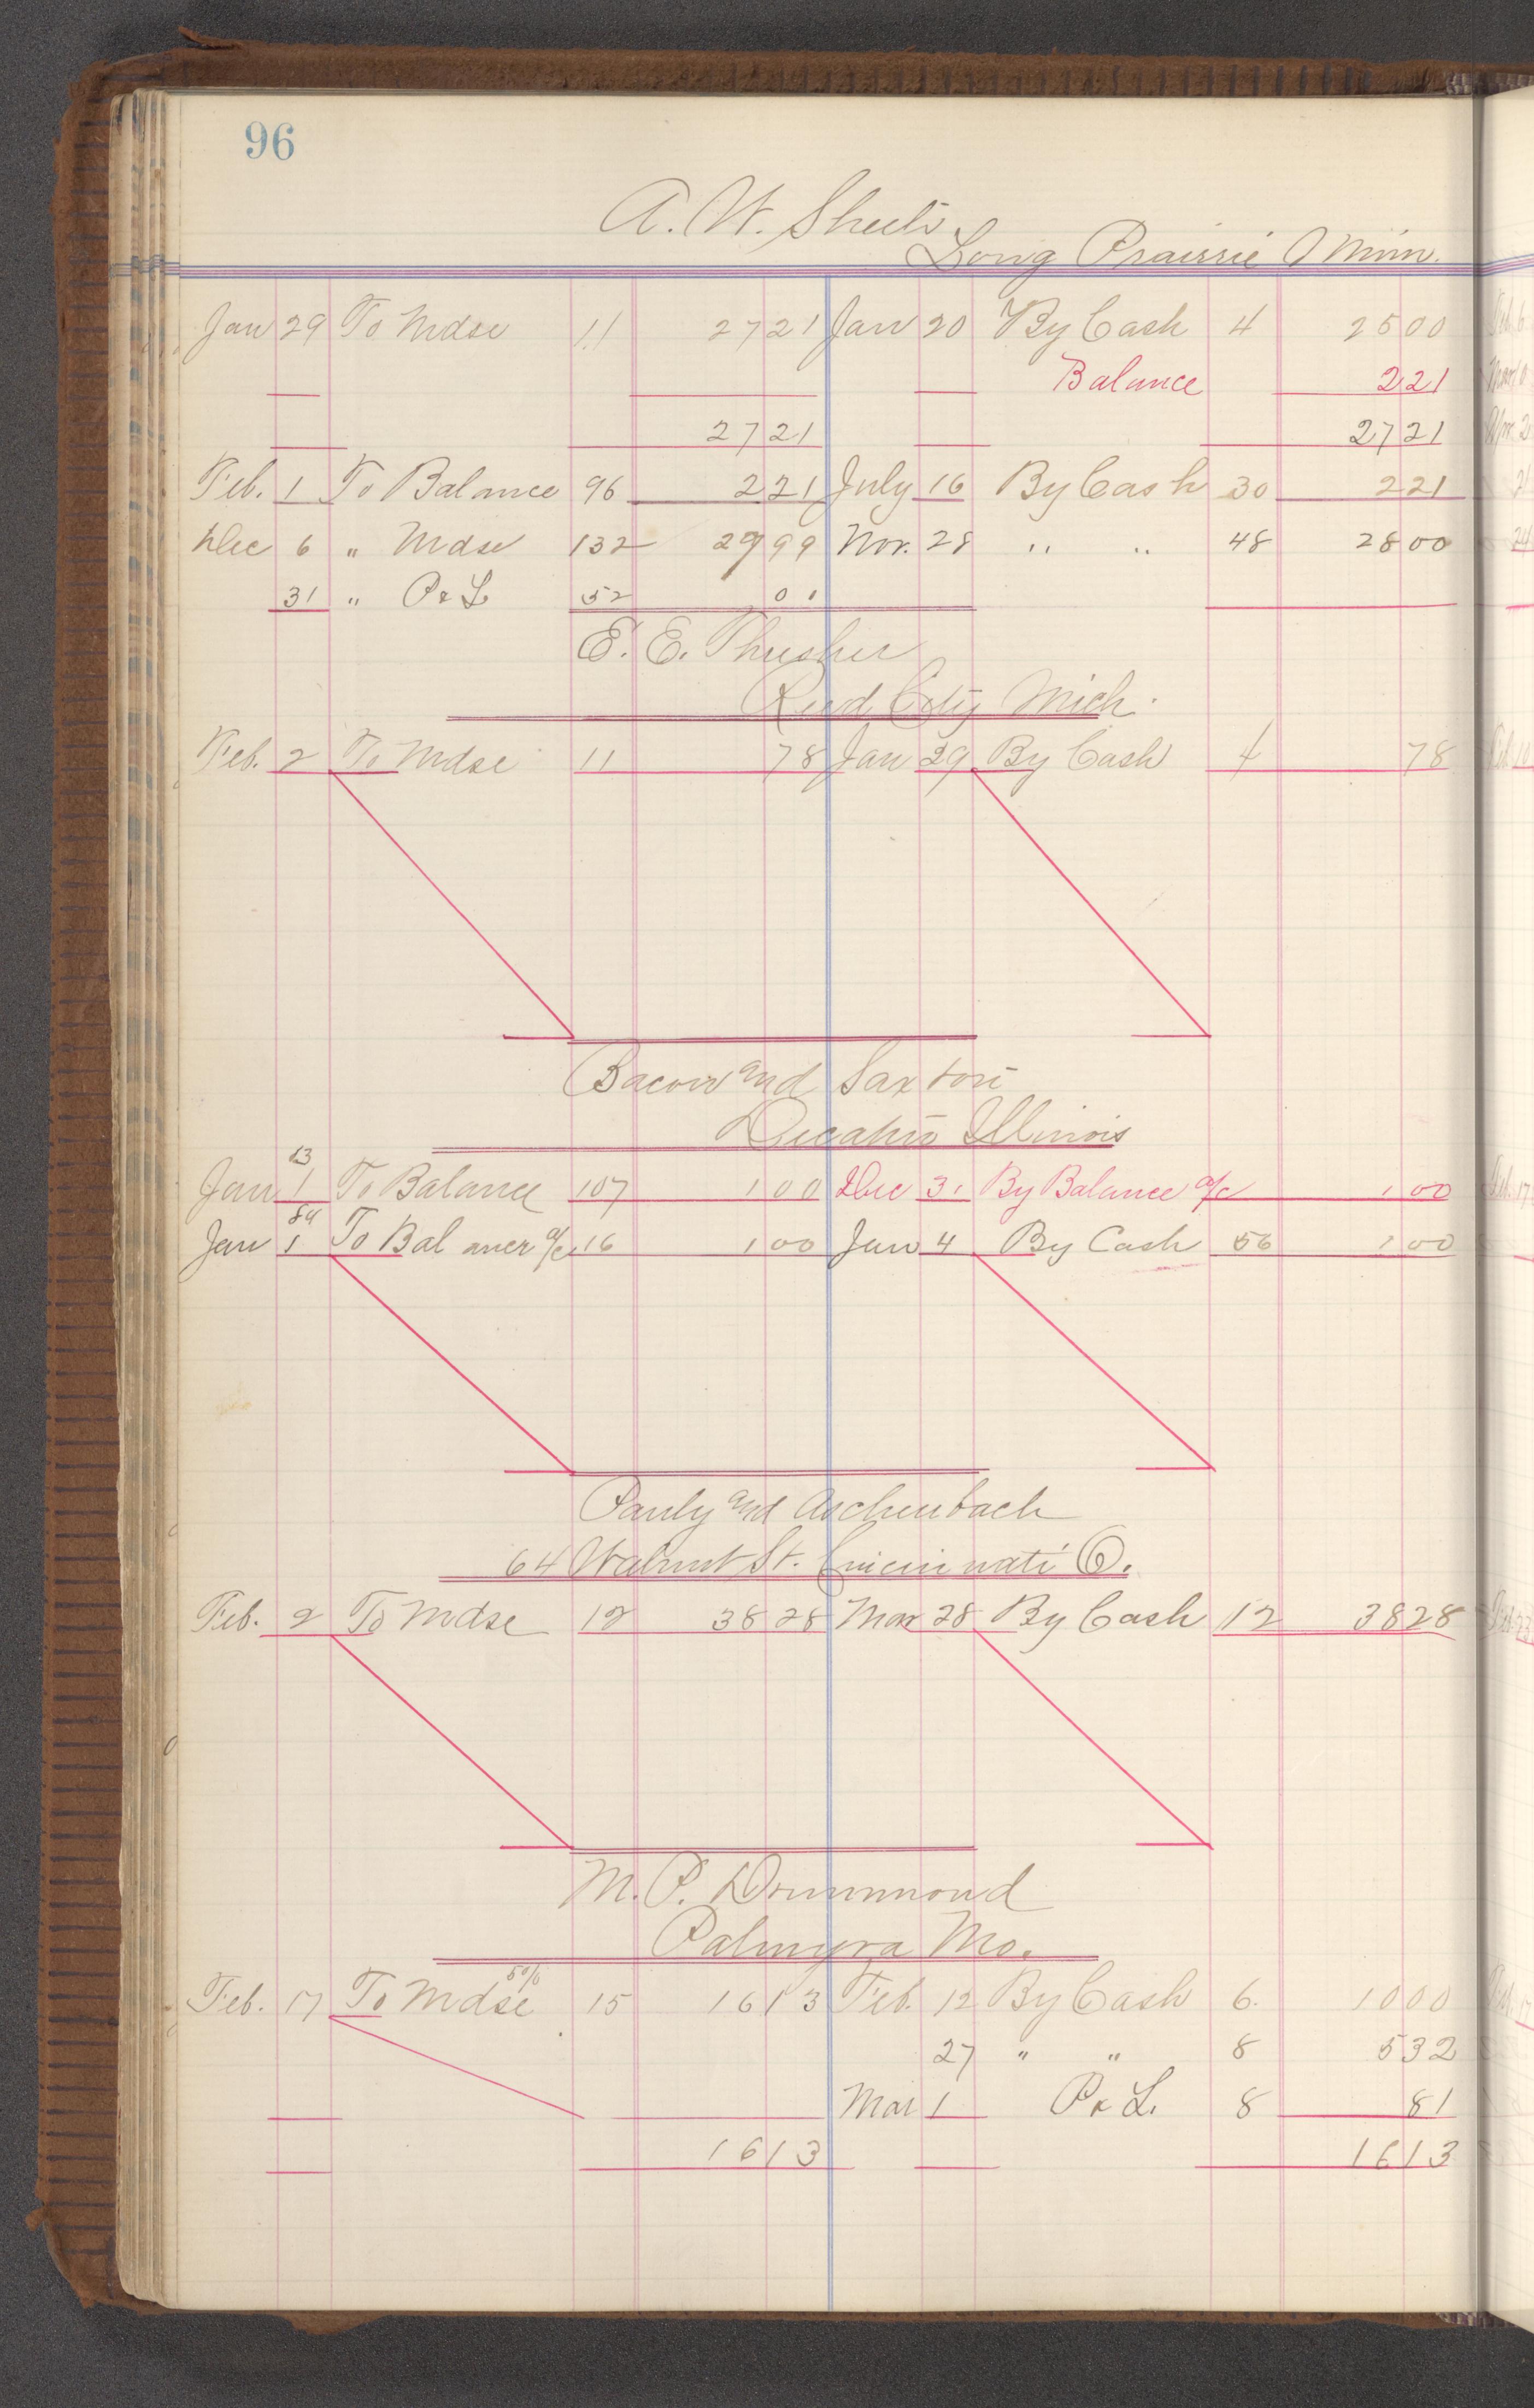 96
A. W. Sheets
Long Prairie Minn.
Jan 29 To Mdse 11 27 21 Jan 20 By Cash 4 25 00
Balance 2 21
27 21 27 21
Feb. 1 To Balance 96 2 21 July 16 By Cash 30 2 21
Dec 6 " Mdse 132 29 99 Nov. 28 " " 48 28 00
31 " P & L 52 01
E. E. Thresher
Reed City Mich.
Feb. 2 To Mdse 11 78 Jan 29 By Cash 4 78
Bacon and Saxton
Decatur Illinois
83
Jan 1 To Balance 107 1 00 Dec 31 By Balance a/c 1 00
84
Jan 1 To Balance a/c 16 1 00 Jan 4 By Cash 56 1 00
Pauly and Aschenbach
64 Walnut St. Cincinnati O.
Feb. 2 To Mdse 12 38 28 Mar 28 By Cash 12 38 28
M. P. Drummond
Palmyra Mo.
5%
Feb. 17 To Mdse 15 16 13 Feb. 12 By Cash 6. 10 00
27 " " 8 5 32
Mar 1 P & L. 8 81
16 13 16 13